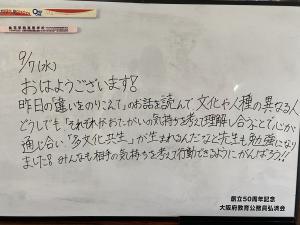 9/7(水)
おはようございます!
昨日の「違いをのりこえて」のお話を読んで、文化や人種の異なる人
どうしでも「それぞれがおたがいの気持ちを考え理解し合うことで心が
通じ合い「多文化共生」が生まれるんだなと先生も勉強になり
ました!みんなも相手の気持ちを考えて行動できるようにがんばろう!!
創立50周年記念
大阪府教育公務員弘済会